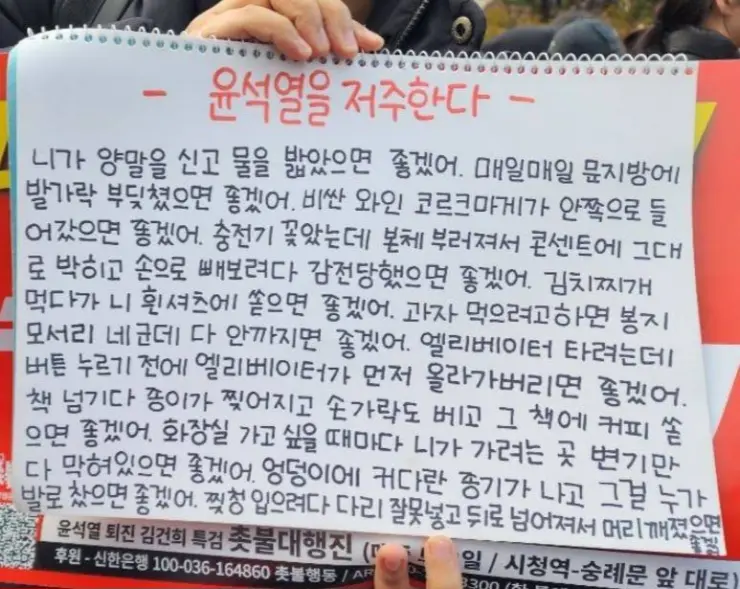 - 윤석열을 저주한다 -
니가 양말을 신고 물을 밟았으면 좋겠어. 매일매일 문지방에
발가락 부딪쳤으면 좋겠어. 비싼 와인 코르크마게가 안쪽으로 들
어갔으면 좋겠어. 충전기 꽂았는데 본체 부러져서 콘센트에 그대
로 박히고 손으로 빼보려다 감전당했으면 좋겠어. 김치찌개
먹다가 니 흰셔츠에 쏟으면 좋겠어. 과자 먹으려고하면 봉지
모서리 네군데 다 안까지면 좋겠어. 엘리베이터 타려는데
버튼 누르기 전에 엘리베이터가 먼저 올라가버리면 좋겠어.
책 넘기다 종이가 찢어지고 손가락도 베고 그 책에 커피 쏟
으면 좋겠어. 화장실 가고 싶을 때마다 니가 가려는 곳 변기만
다 막혀있으면 좋겠어. 엉덩이에 커다란 종기가 나고 그걸 누가
발로 찼으면 좋겠어. 찢청 입으려다 다리 잘못넣고 뒤로 넘어져서 머리 깨졌으면
좋겠
윤석열 퇴진 김건희 특검 촛불대행진 (매 일 / 시청역-숭례문 앞 대로)
후원 - 신한은행 100-036-164860 촛불행동 / AR 3300